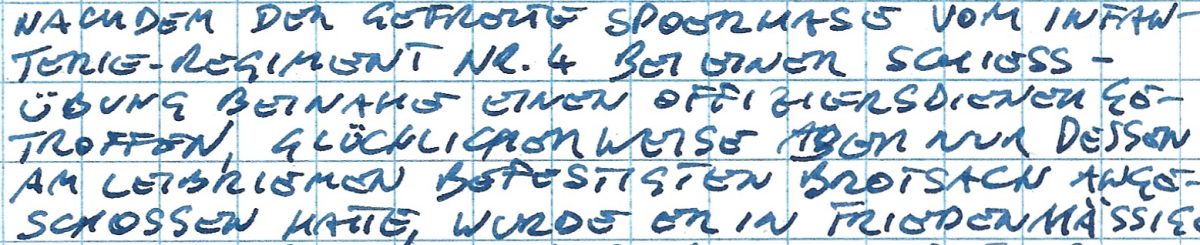 NACHDEM DER GEFREITE SPOERHASE VOM INFAN-
TERIE-REGIMENT NR. 4 BEI EINER SCHIESS-
ÜBUNG BEINAHE EINEN OFFIZIERSDIENER GE-
TROFFEN, GLÜCKLICHERWEISE ABER NUR DESSEN
AM LEIBRIEMEN BEFESTIGTEN BROTSACK ANGE-
SCHOSSEN HATTE, WURDE ER IN FRIEDENMÄSSIG